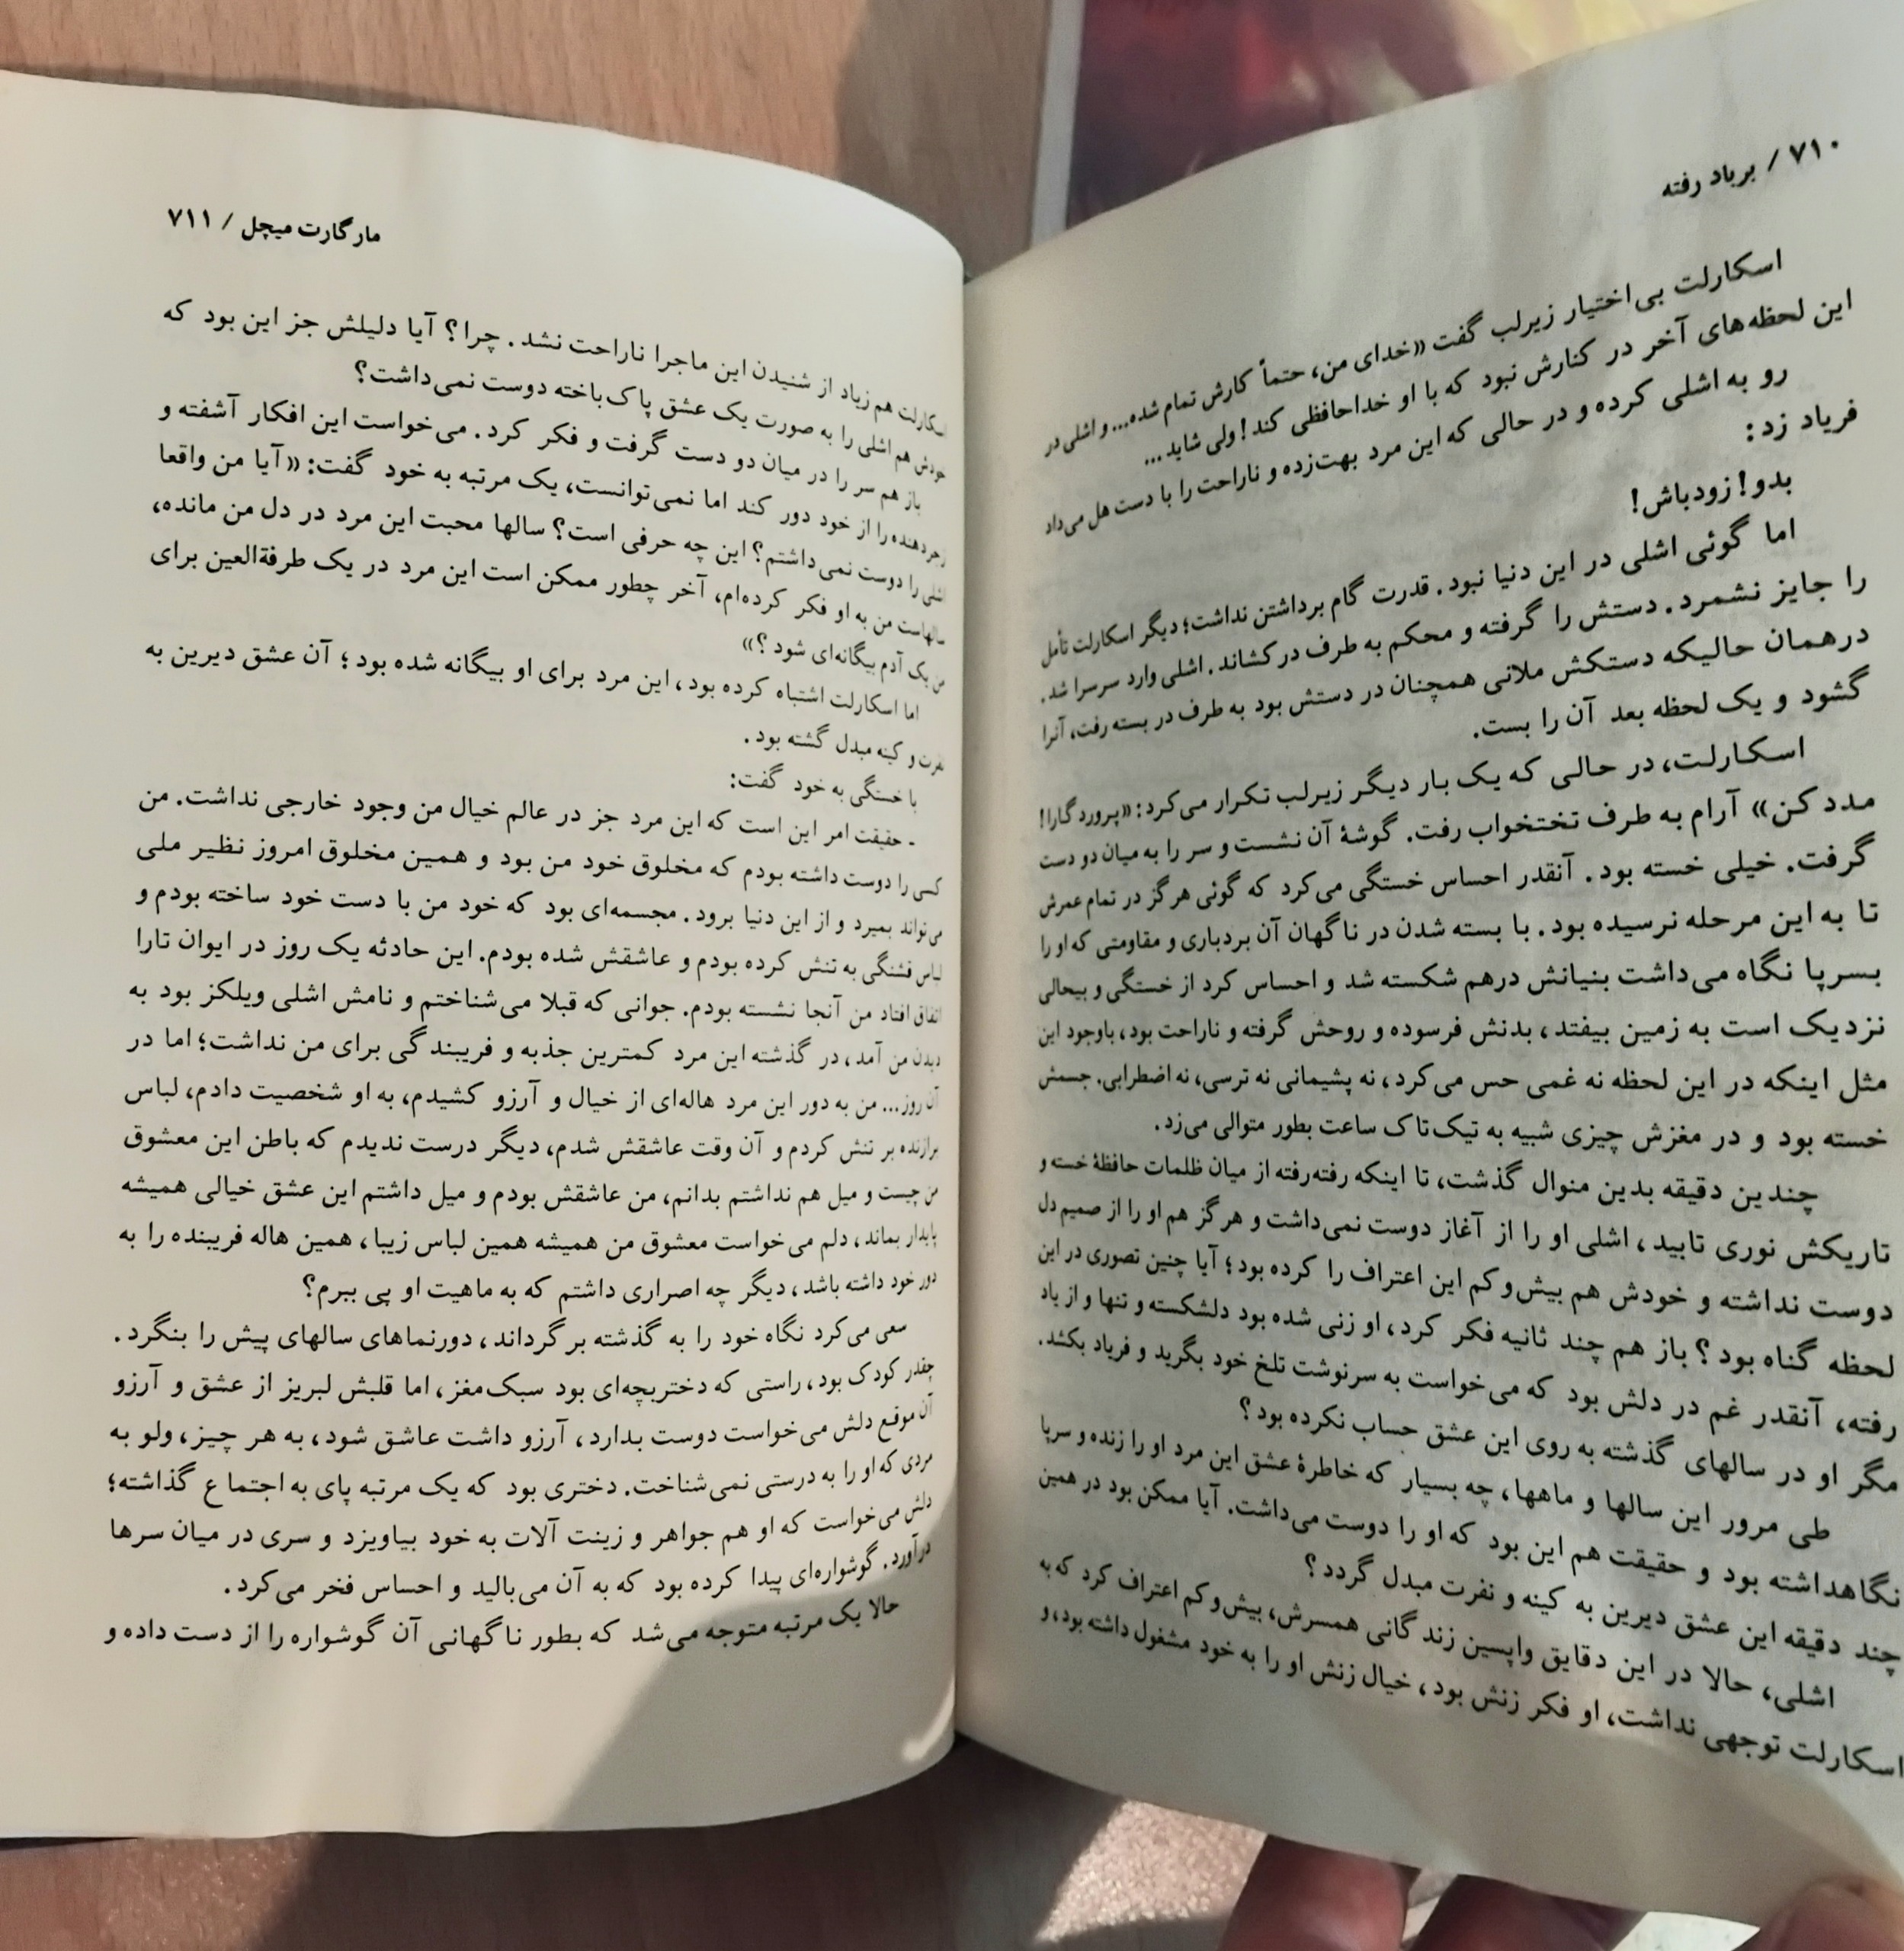 ۷۱۰ / برباد رفته
اسکارلت بی‌اختیار زیرلب گفت «خدای من، حتماً کارش تمام شده... و اشلی در
این لحظه‌های آخر در کنارش نبود که با او خداحافظی کند! ولی شاید...
رو به اشلی کرده و در حالی که این مرد بهت‌زده و ناراحت را با دست هل می‌داد
فریاد زد:
بدو! زودباش!
اما گوئی اشلی در این دنیا نبود. قدرت گام برداشتن نداشت؛ دیگر اسکارلت تأمل
را جایز نشمرد. دستش را گرفته و محکم به طرف در کشاند. اشلی وارد سرسرا شد.
درهمان حالیکه دستکش ملانی همچنان در دستش بود به طرف در بسته رفت، آنرا
گشود و یک لحظه بعد آن را بست.
اسکارلت، در حالی که یک بار دیگر زیرلب تکرار می‌کرد: «پروردگارا!
مدد کن» آرام به طرف تختخواب رفت. گوشهٔ آن نشست و سر را به میان دو دست
گرفت. خیلی خسته بود. آنقدر احساس خستگی می‌کرد که گوئی هرگز در تمام عمرش
تا به این مرحله نرسیده بود. با بسته شدن در ناگهان آن بردباری و مقاومتی که او را
بسرپا نگاه می‌داشت بنیانش درهم شکسته شد و احساس کرد از خستگی و بیحالی
نزدیک است به زمین بیفتد، بدنش فرسوده و روحش گرفته و ناراحت بود، باوجود این
مثل اینکه در این لحظه نه غمی حس می‌کرد، نه پشیمانی نه ترسی، نه اضطرابی. جسمش
خسته بود و در مغزش چیزی شبیه به تیک‌تاک ساعت بطور متوالی می‌زد.
چندین دقیقه بدین منوال گذشت، تا اینکه رفته‌رفته از میان ظلمات حافظهٔ خسته و
تاریکش نوری تابید، اشلی او را از آغاز دوست نمی‌داشت و هرگز هم او را از صمیم دل
دوست نداشته و خودش هم بیش‌وکم این اعتراف را کرده بود؛ آیا چنین تصوری در این
لحظه گناه بود؟ باز هم چند ثانیه فکر کرد، او زنی شده بود دلشکسته و تنها و از یاد
رفته، آنقدر غم در دلش بود که می‌خواست به سرنوشت تلخ خود بگرید و فریاد بکشد.
مگر او در سالهای گذشته به روی این عشق حساب نکرده بود؟
طی مرور این سالها و ماهها، چه بسیار که خاطرهٔ عشق این مرد او را زنده و سرپا
نگاهداشته بود و حقیقت هم این بود که او را دوست می‌داشت. آیا ممکن بود در همین
چند دقیقه این عشق دیرین به کینه و نفرت مبدل گردد؟
اشلی، حالا در این دقایق واپسین زندگانی همسرش، بیش‌وکم اعتراف کرد که به
اسکارلت توجهی نداشت، او فکر زنش بود، خیال زنش او را به خود مشغول داشته بود، و
مارگارت میچل / ۷۱۱
اسکارلت هم زیاد از شنیدن این ماجرا ناراحت نشد. چرا؟ آیا دلیلش جز این بود که
خودش هم اشلی را به صورت یک عشق پاک‌باخته دوست نمی‌داشت؟
باز هم سر را در میان دو دست گرفت و فکر کرد. می‌خواست این افکار آشفته و
زجردهنده را از خود دور کند اما نمی‌توانست، یک مرتبه به خود گفت: «آیا من واقعا
اشلی را دوست نمی‌داشتم؟ این چه حرفی است؟ سالها محبت این مرد در دل من مانده،
سالهاست من به او فکر کرده‌ام، آخر چطور ممکن است این مرد در یک طرفةالعین برای
من یک آدم بیگانه‌ای شود؟»
اما اسکارلت اشتباه کرده بود، این مرد برای او بیگانه شده بود؛ آن عشق دیرین به
نفرت و کینه مبدل گشته بود.
با خستگی به خود گفت:
- حقیقت امر این است که این مرد جز در عالم خیال من وجود خارجی نداشت. من
کسی را دوست داشته بودم که مخلوق خود من بود و همین مخلوق امروز نظیر ملی
می‌تواند بمیرد و از این دنیا برود. مجسمه‌ای بود که خود من با دست خود ساخته بودم و
لباس قشنگی به تنش کرده بودم و عاشقش شده بودم. این حادثه یک روز در ایوان تارا
اتفاق افتاد من آنجا نشسته بودم. جوانی که قبلا می‌شناختم و نامش اشلی ویلکز بود به
دیدن من آمد، در گذشته این مرد کمترین جذبه و فریبندگی برای من نداشت؛ اما در
آن روز... من به دور این مرد هاله‌ای از خیال و آرزو کشیدم، به او شخصیت دادم، لباس
برازنده بر تنش کردم و آن وقت عاشقش شدم، دیگر درست ندیدم که باطن این معشوق
من چیست و میل هم نداشتم بدانم، من عاشقش بودم و میل داشتم این عشق خیالی همیشه
پایدار بماند، دلم می‌خواست معشوق من همیشه همین لباس زیبا، همین هاله فریبنده را به
دور خود داشته باشد، دیگر چه اصراری داشتم که به ماهیت او پی ببرم؟
سعی می‌کرد نگاه خود را به گذشته برگرداند، دورنماهای سالهای پیش را بنگرد.
چقدر کودک بود، راستی که دختربچه‌ای بود سبک‌مغز، اما قلبش لبریز از عشق و آرزو
آن موقع دلش می‌خواست دوست بدارد، آرزو داشت عاشق شود، به هر چیز، ولو به
مردی که او را به درستی نمی‌شناخت. دختری بود که یک مرتبه پای به اجتماع گذاشته؛
دلش می‌خواست که او هم جواهر و زینت آلات به خود بیاویزد و سری در میان سرها
درآورد. گوشواره‌ای پیدا کرده بود که به آن می‌بالید و احساس فخر می‌کرد.
حالا یک مرتبه متوجه می‌شد که بطور ناگهانی آن گوشواره را از دست داده و